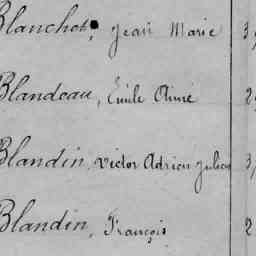 Blanchot, Jean Marie 3
Blandeau, Emile Aimé 2
Blandin, Victor Adrien Julien 3
Blandin, François 2